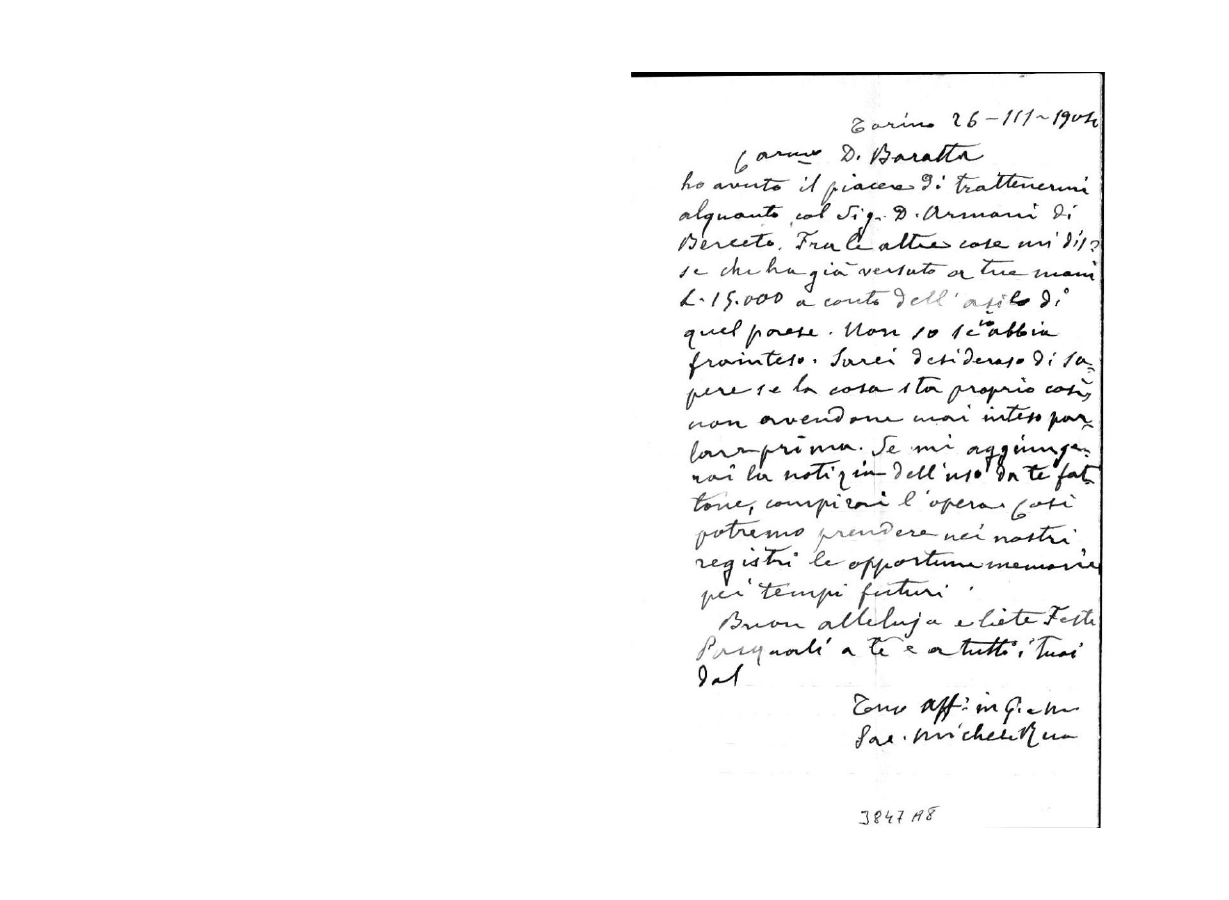 Torino 26-III-1904
Carmo D. Baratta
ho avuto il piacere di trattenermi
alquanto col Sig. D. Armani di
Berceto. Fra le altre cose mi dis=
se che ha già versato a tue mani
L. 15.000 a conto dell'asilo di
quel paese. Non so se io abbia
frainteso. Sarei desideroso di sa=
pere se la cosa sta proprio così,
non avendone mai inteso par=
lare prima. Se mi aggiunge=
rai la notizia dell'uso da te fat=
tone, compirai l'opera. Così
potremo prendere nei nostri
registri le opportune memorie
pei tempi futuri.
Buon alleluja e liete Feste
Pasquali a te e a tutti i tuoi
dal
Tuo aff. in G. e M.
Sac. Michele Rua
3847 A8